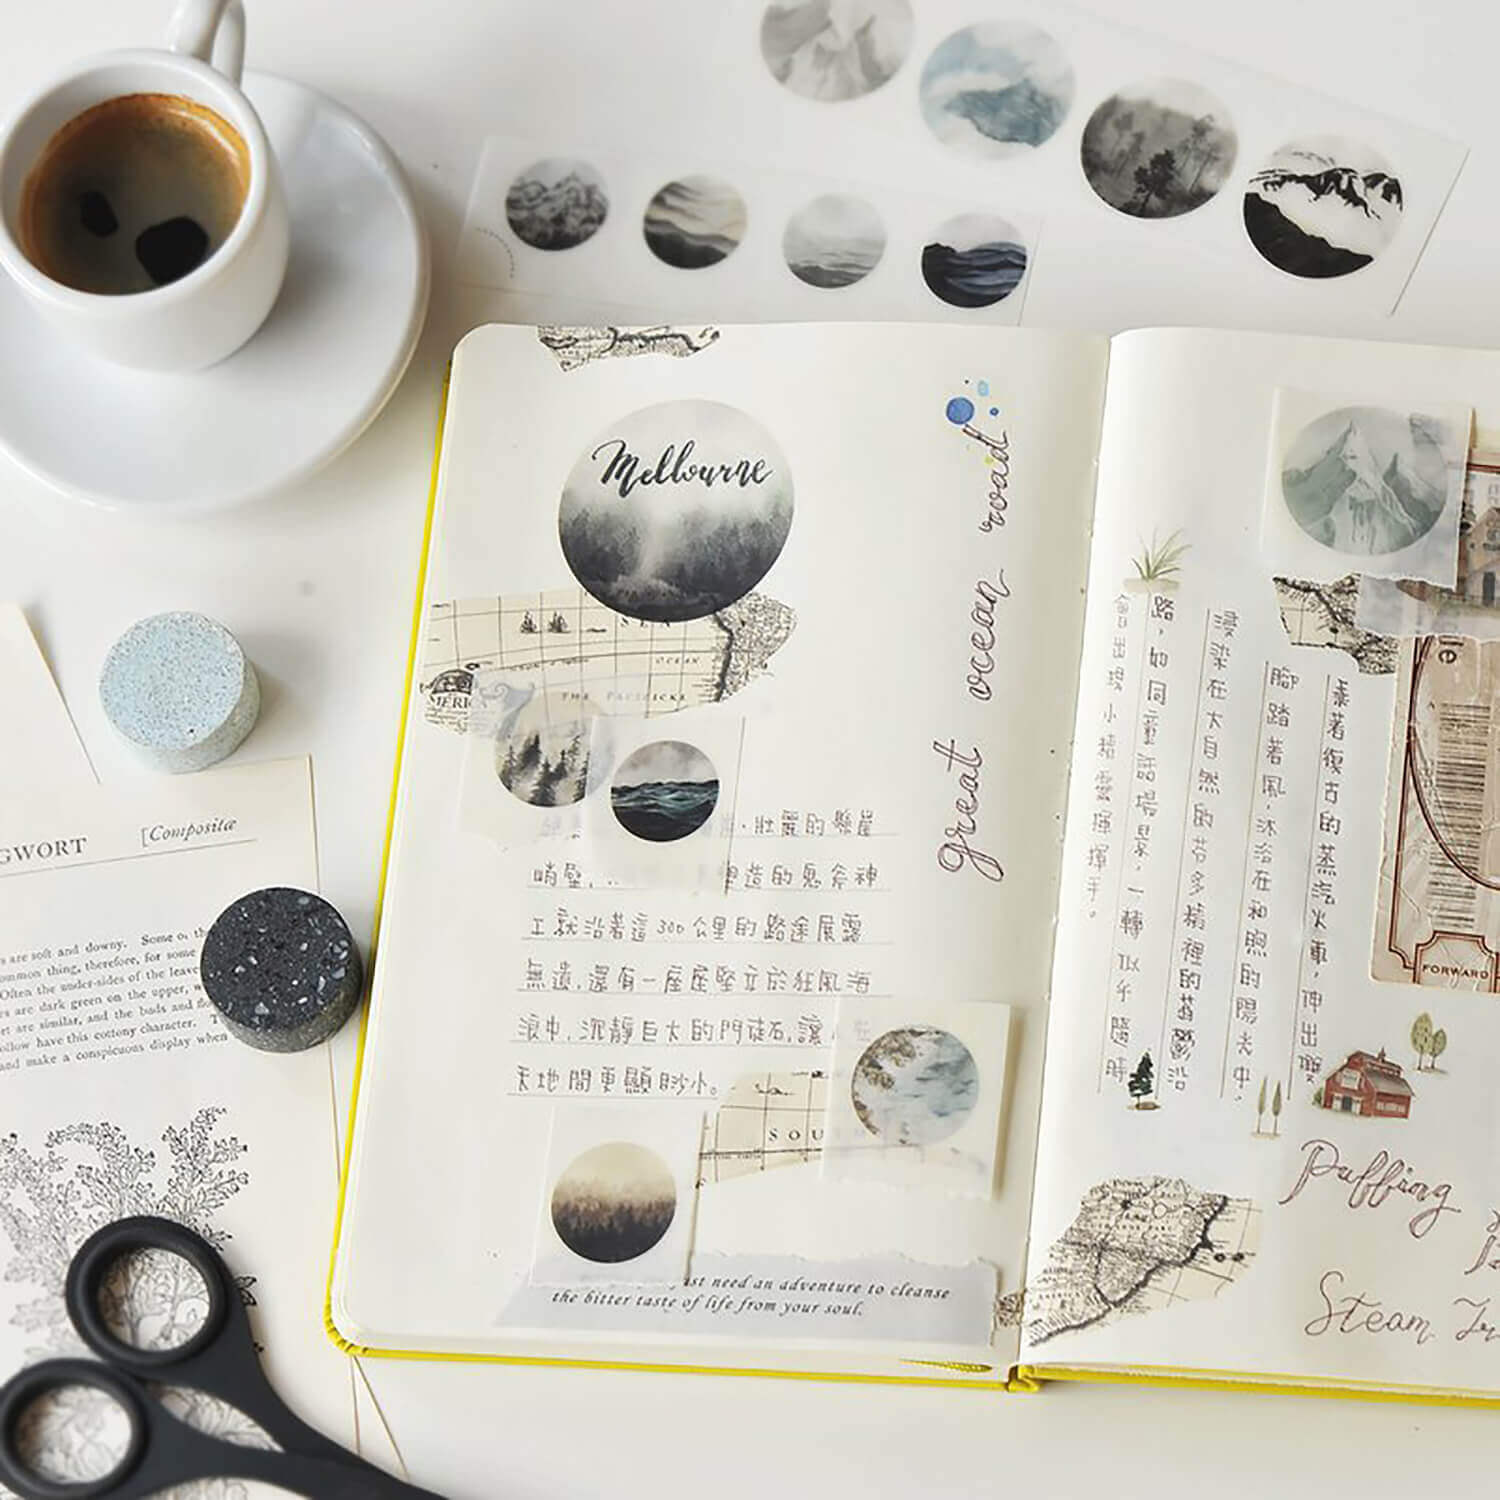 Melbourne
great ocean road
SEA
OCEAN
THE PACIFICKE
MERICA
壯麗的懸崖
峭壁, 塑造的鬼斧神
工就沿著這300公里的路途展露
無遺,還有一座座堅立於狂風海
浪中,沉靜巨大的門徒石,讓
天地間更顯渺小。
SOU
need an adventure to cleanse
the bitter taste of life from your soul.
乘著復古的蒸汽火車,伸出雙
腳踏著風,沐浴在和煦的陽光中,
在大自然的芬多精裡的蓊鬱沿
路,如同童話場景,一轉似乎隨時
會出現小精靈揮揮手。
FORWARD
Puffing
Steam
GWORT
[Compositæ
s are soft and downy. Some
ommon thing, therefore, for some
Often the under-sides of the leave
es are dark green on the upper,
rt are similar, and the buds and
ollow have this cottony character.
and make a conspicuous display when